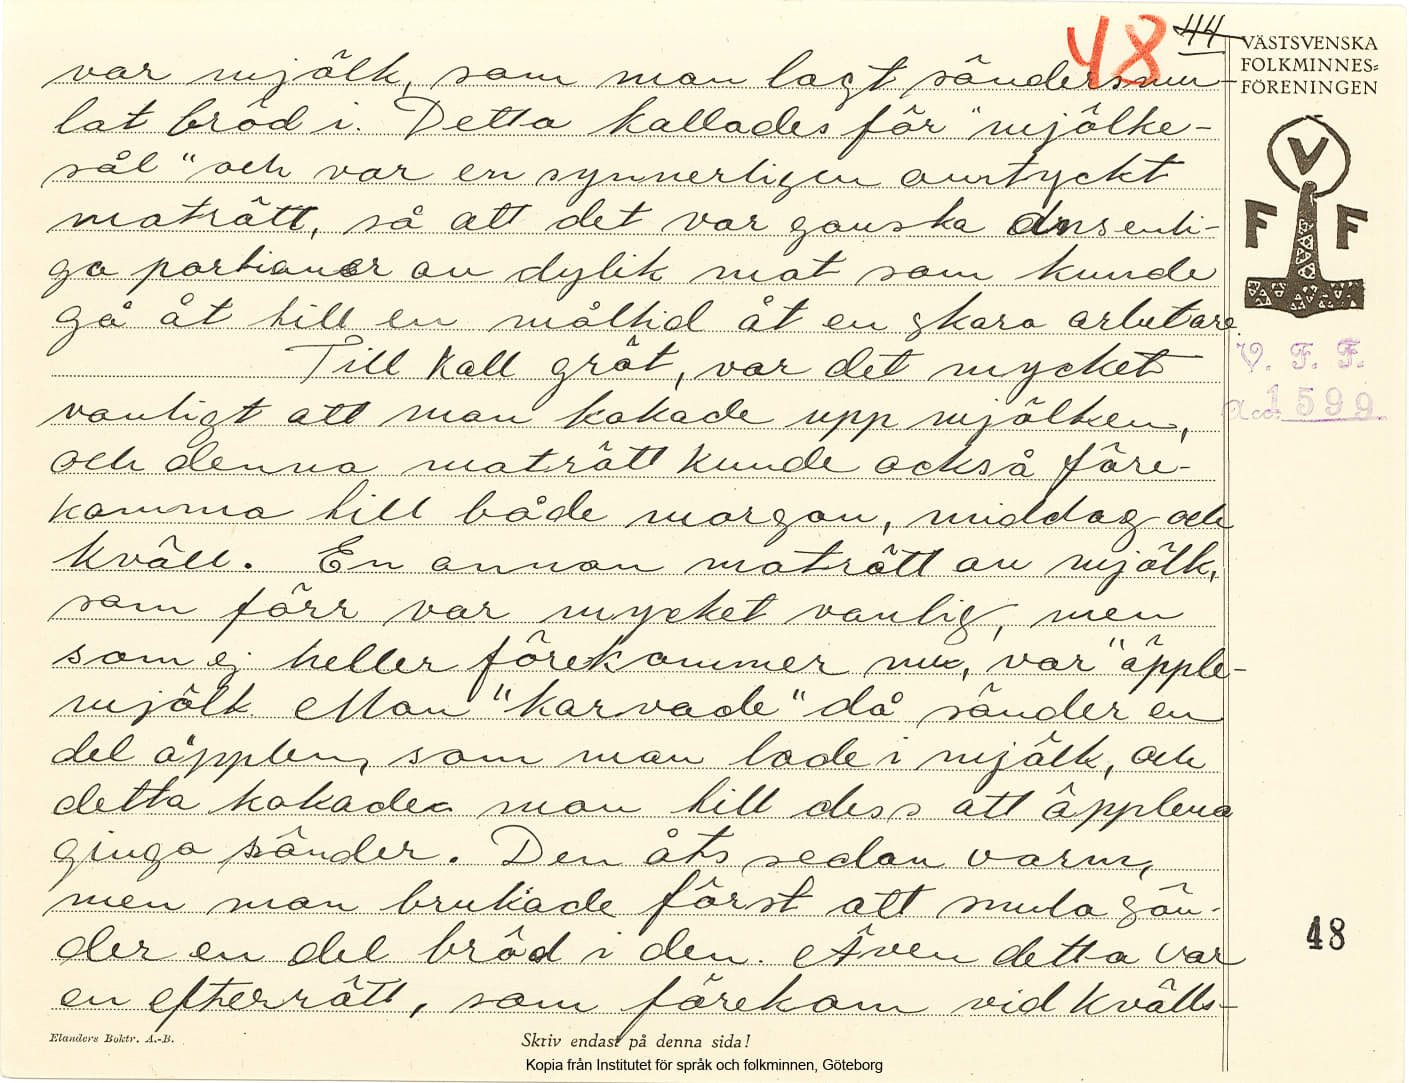 48 44
VÄSTSVENSKA
FOLKMINNES=
FÖRENINGEN
V
F F
V. F. F.
Acc. 1599
var mjölk, som man lagt söndersmu-
lat bröd i. Detta kallades för "mjölke-
sål" och var en synnerligen omtyckt
maträtt, så att det var ganska ansenli-
ga portioner av dylik mat som kunde
gå åt till en måltid åt en skara arbetare.
Till kall gröt, var det mycket
vanligt att man kokade upp mjölken,
och denna maträtt kunde också före-
komma till både morgon, middag och
kväll. En annan maträtt av mjölk,
som förr var mycket vanlig, men
som ej heller förekommer nu, var "äpple-
mjölk. Man "karvade" då sönder en
del äpplen, som man lade i mjölk, och
detta kokade man till dess att äpplena
gingo sönder. Den åts sedan varm,
men man brukade först att smula sön-
der en del bröd i den. Även detta var
en efterrätt, som förekom vid kvälls-
48
Elanders Boktr. A.-B.
Skriv endast på denna sida!
Kopia från Institutet för språk och folkminnen, Göteborg